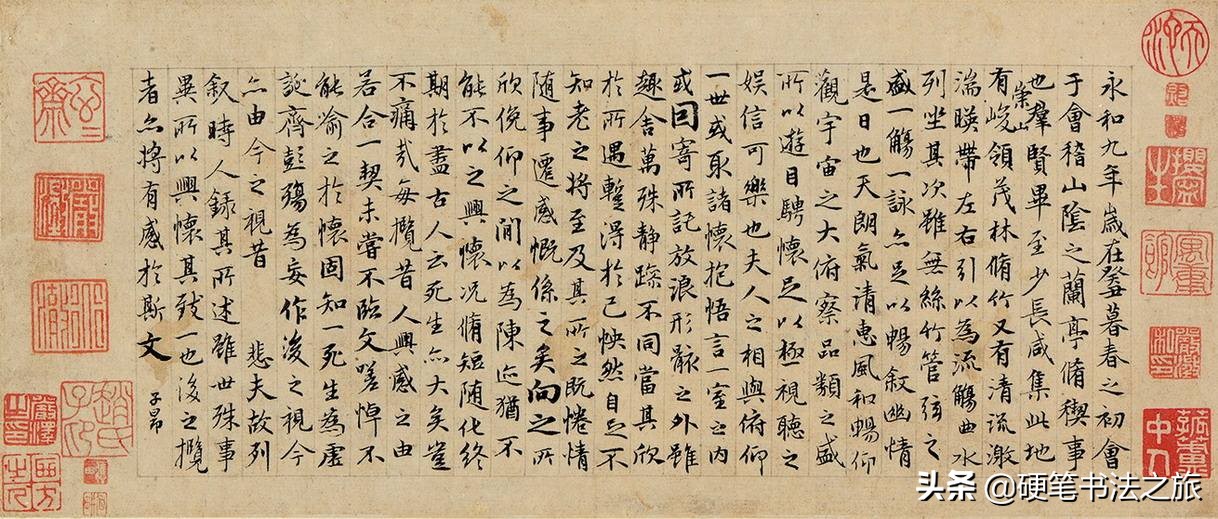 永和九年歲在癸暮春之初會
于會稽山陰之蘭亭脩稧事
也羣賢畢至少長咸集此地
有崇山峻領茂林脩竹又有清流激
湍暎帶左右引以為流觴曲水
列坐其次雖無絲竹管弦之
盛一觴一詠亦足以暢敘幽情
是日也天朗氣清惠風和暢仰
觀宇宙之大俯察品類之盛
所以遊目騁懷足以極視聽之
娛信可樂也夫人之相與俯仰
一世或取諸懷抱悟言一室之內
或因寄所託放浪形骸之外雖
趣舍萬殊靜躁不同當其欣
於所遇蹔得於己怏然自足不
知老之將至及其所之既惓情
隨事遷感慨係之矣向之所
欣俛仰之閒以為陳迹猶不
能不以之興懷況脩短隨化終
期於盡古人云死生亦大矣豈
不痛哉每攬昔人興感之由
若合一契未嘗不臨文嗟悼不
能喻之於懷固知一死生為虛
誕齊彭殤為妄作後之視今
亦由今之視昔 悲夫故列
敘時人錄其所述雖世殊事
異所以興懷其致一也後之攬
者亦將有感於斯文
子昂
头条 @硬笔书法之旅